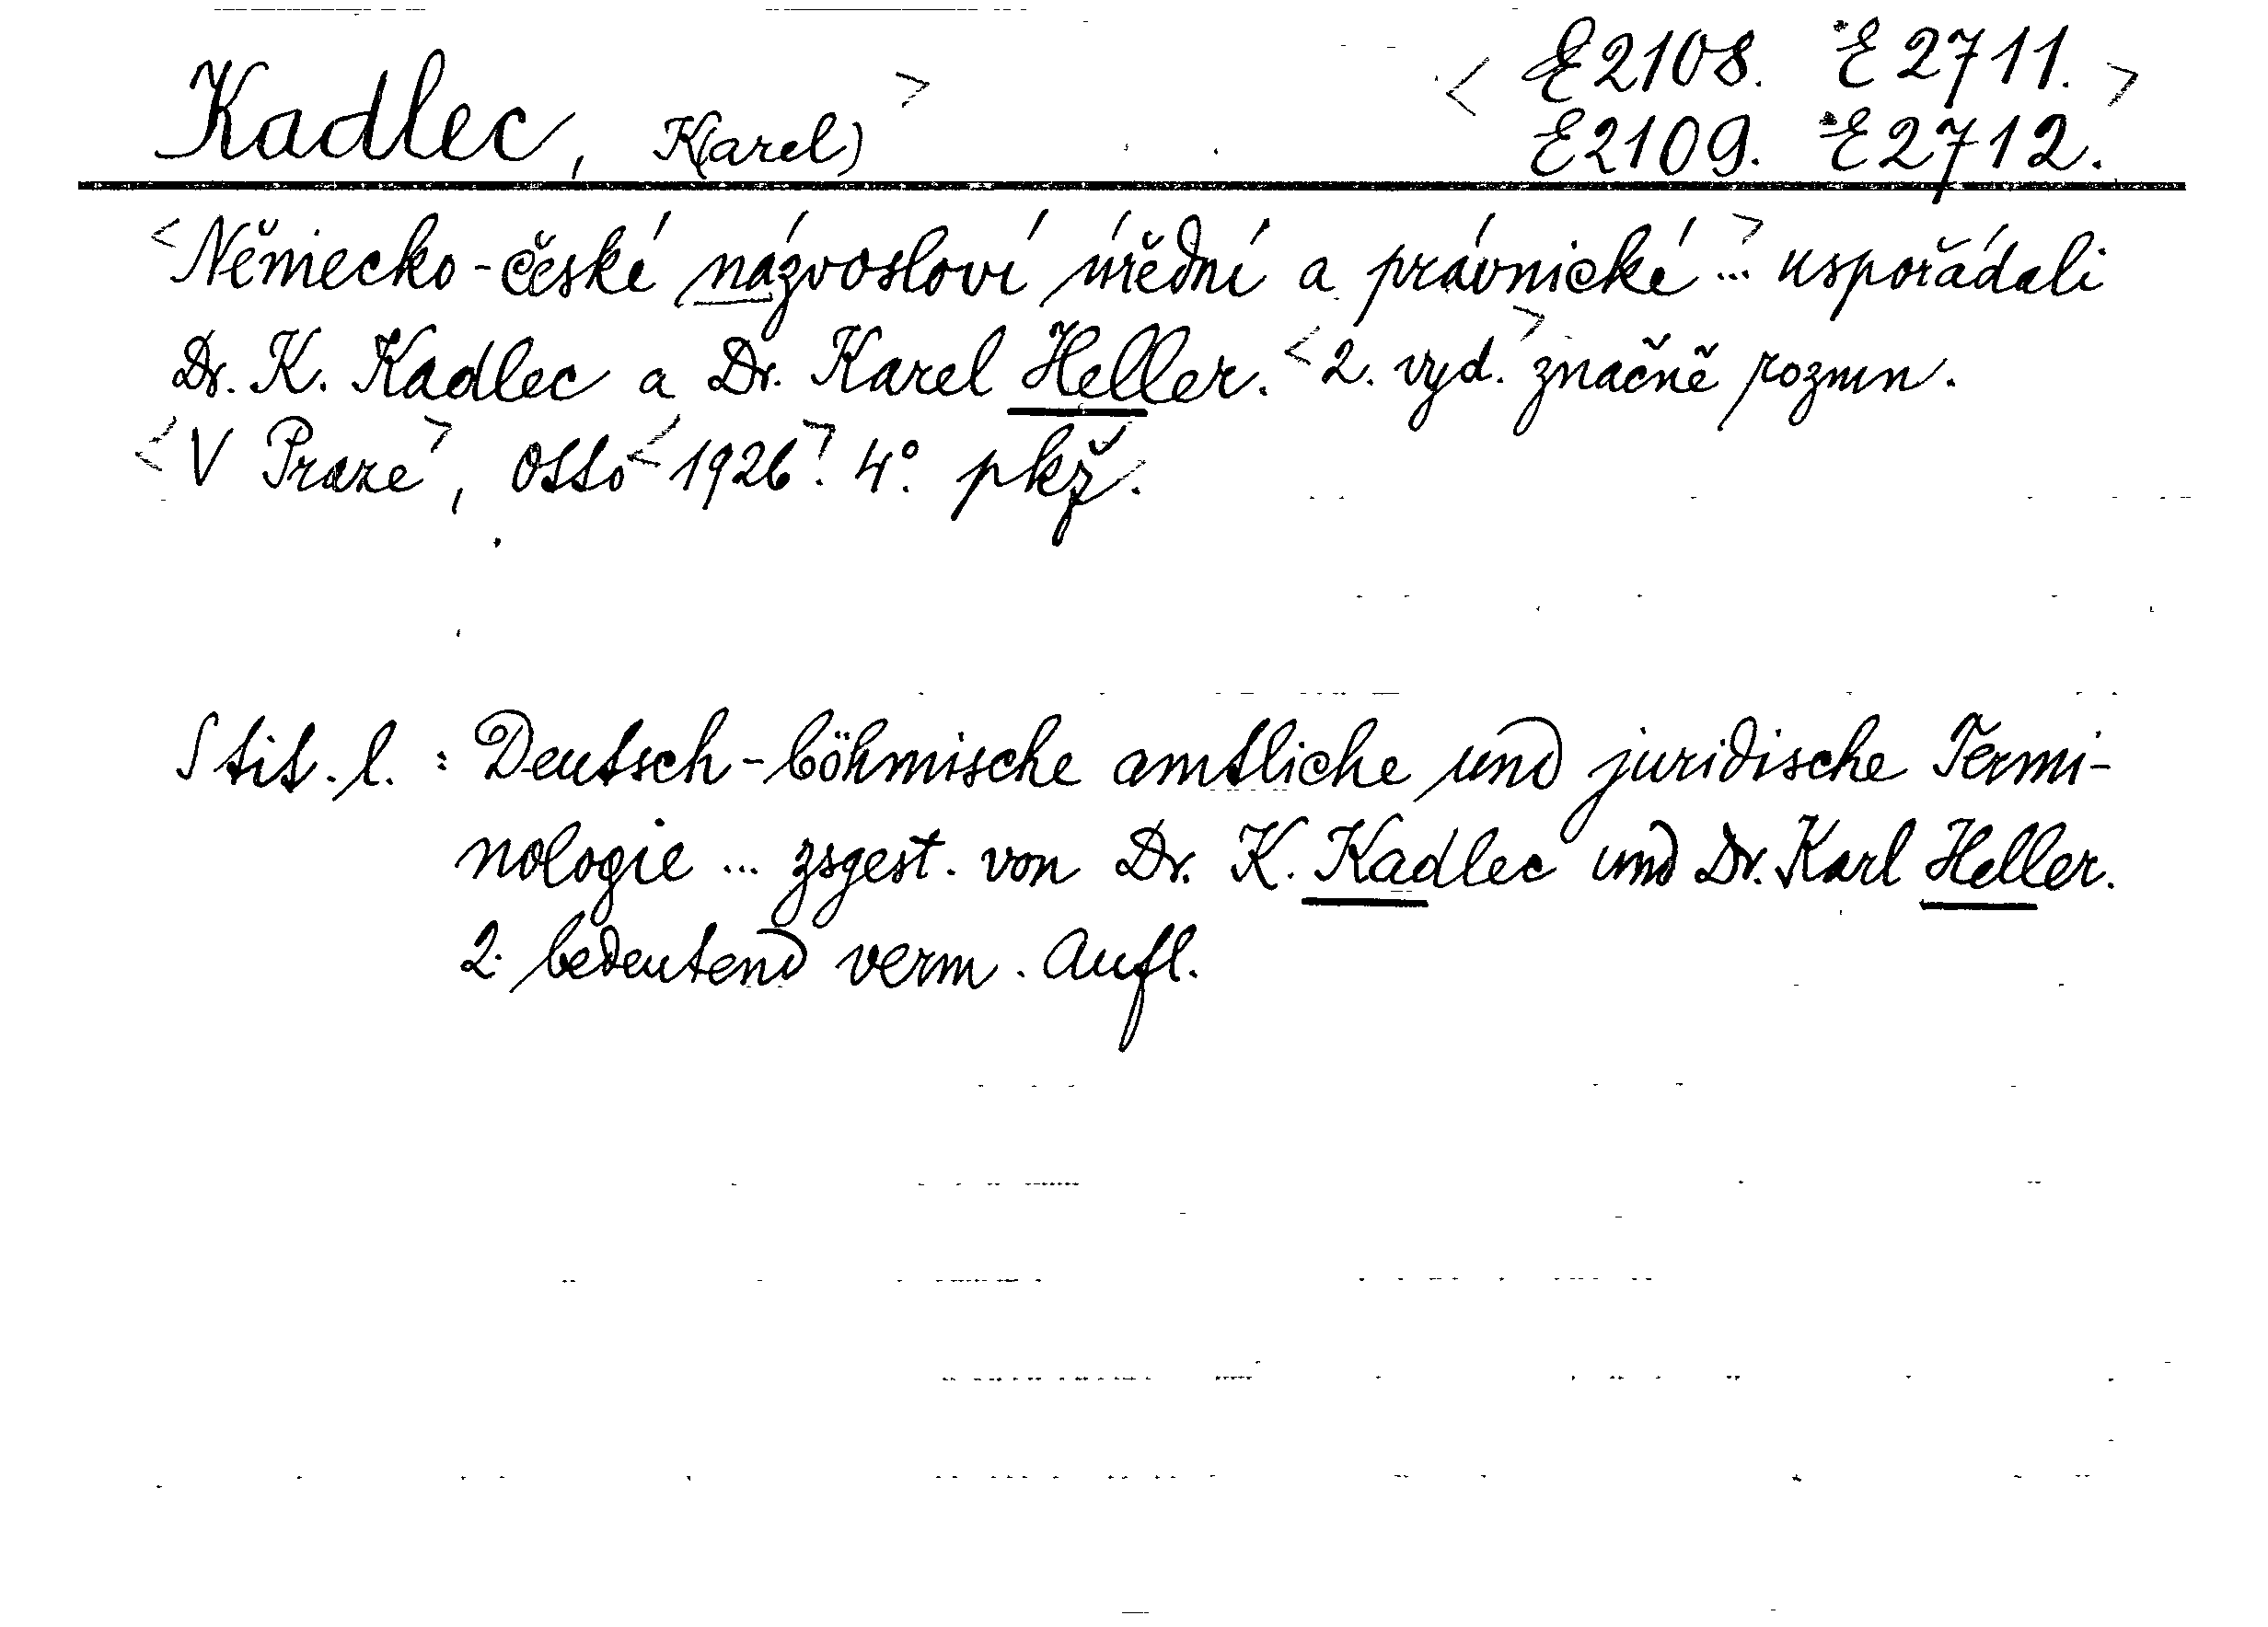 Kadlec, K(arel) > < E2108. *E2711. >
E2109. *E2712.
<Německo-české názvosloví úřední a právnické ...> uspořádali
Dr. K. Kadlec a Dr. Karel Heller. <2. vyd.> značně rozmn.
<V Praze>, Otto <1926>. 4°. pkž.
S tit. l. : Deutsch-böhmische amtliche und juridische Termi-
nologie ... zsgest. von Dr. K. Kadlec und Dr. Karl Heller.
2. bedeutend verm. Aufl.